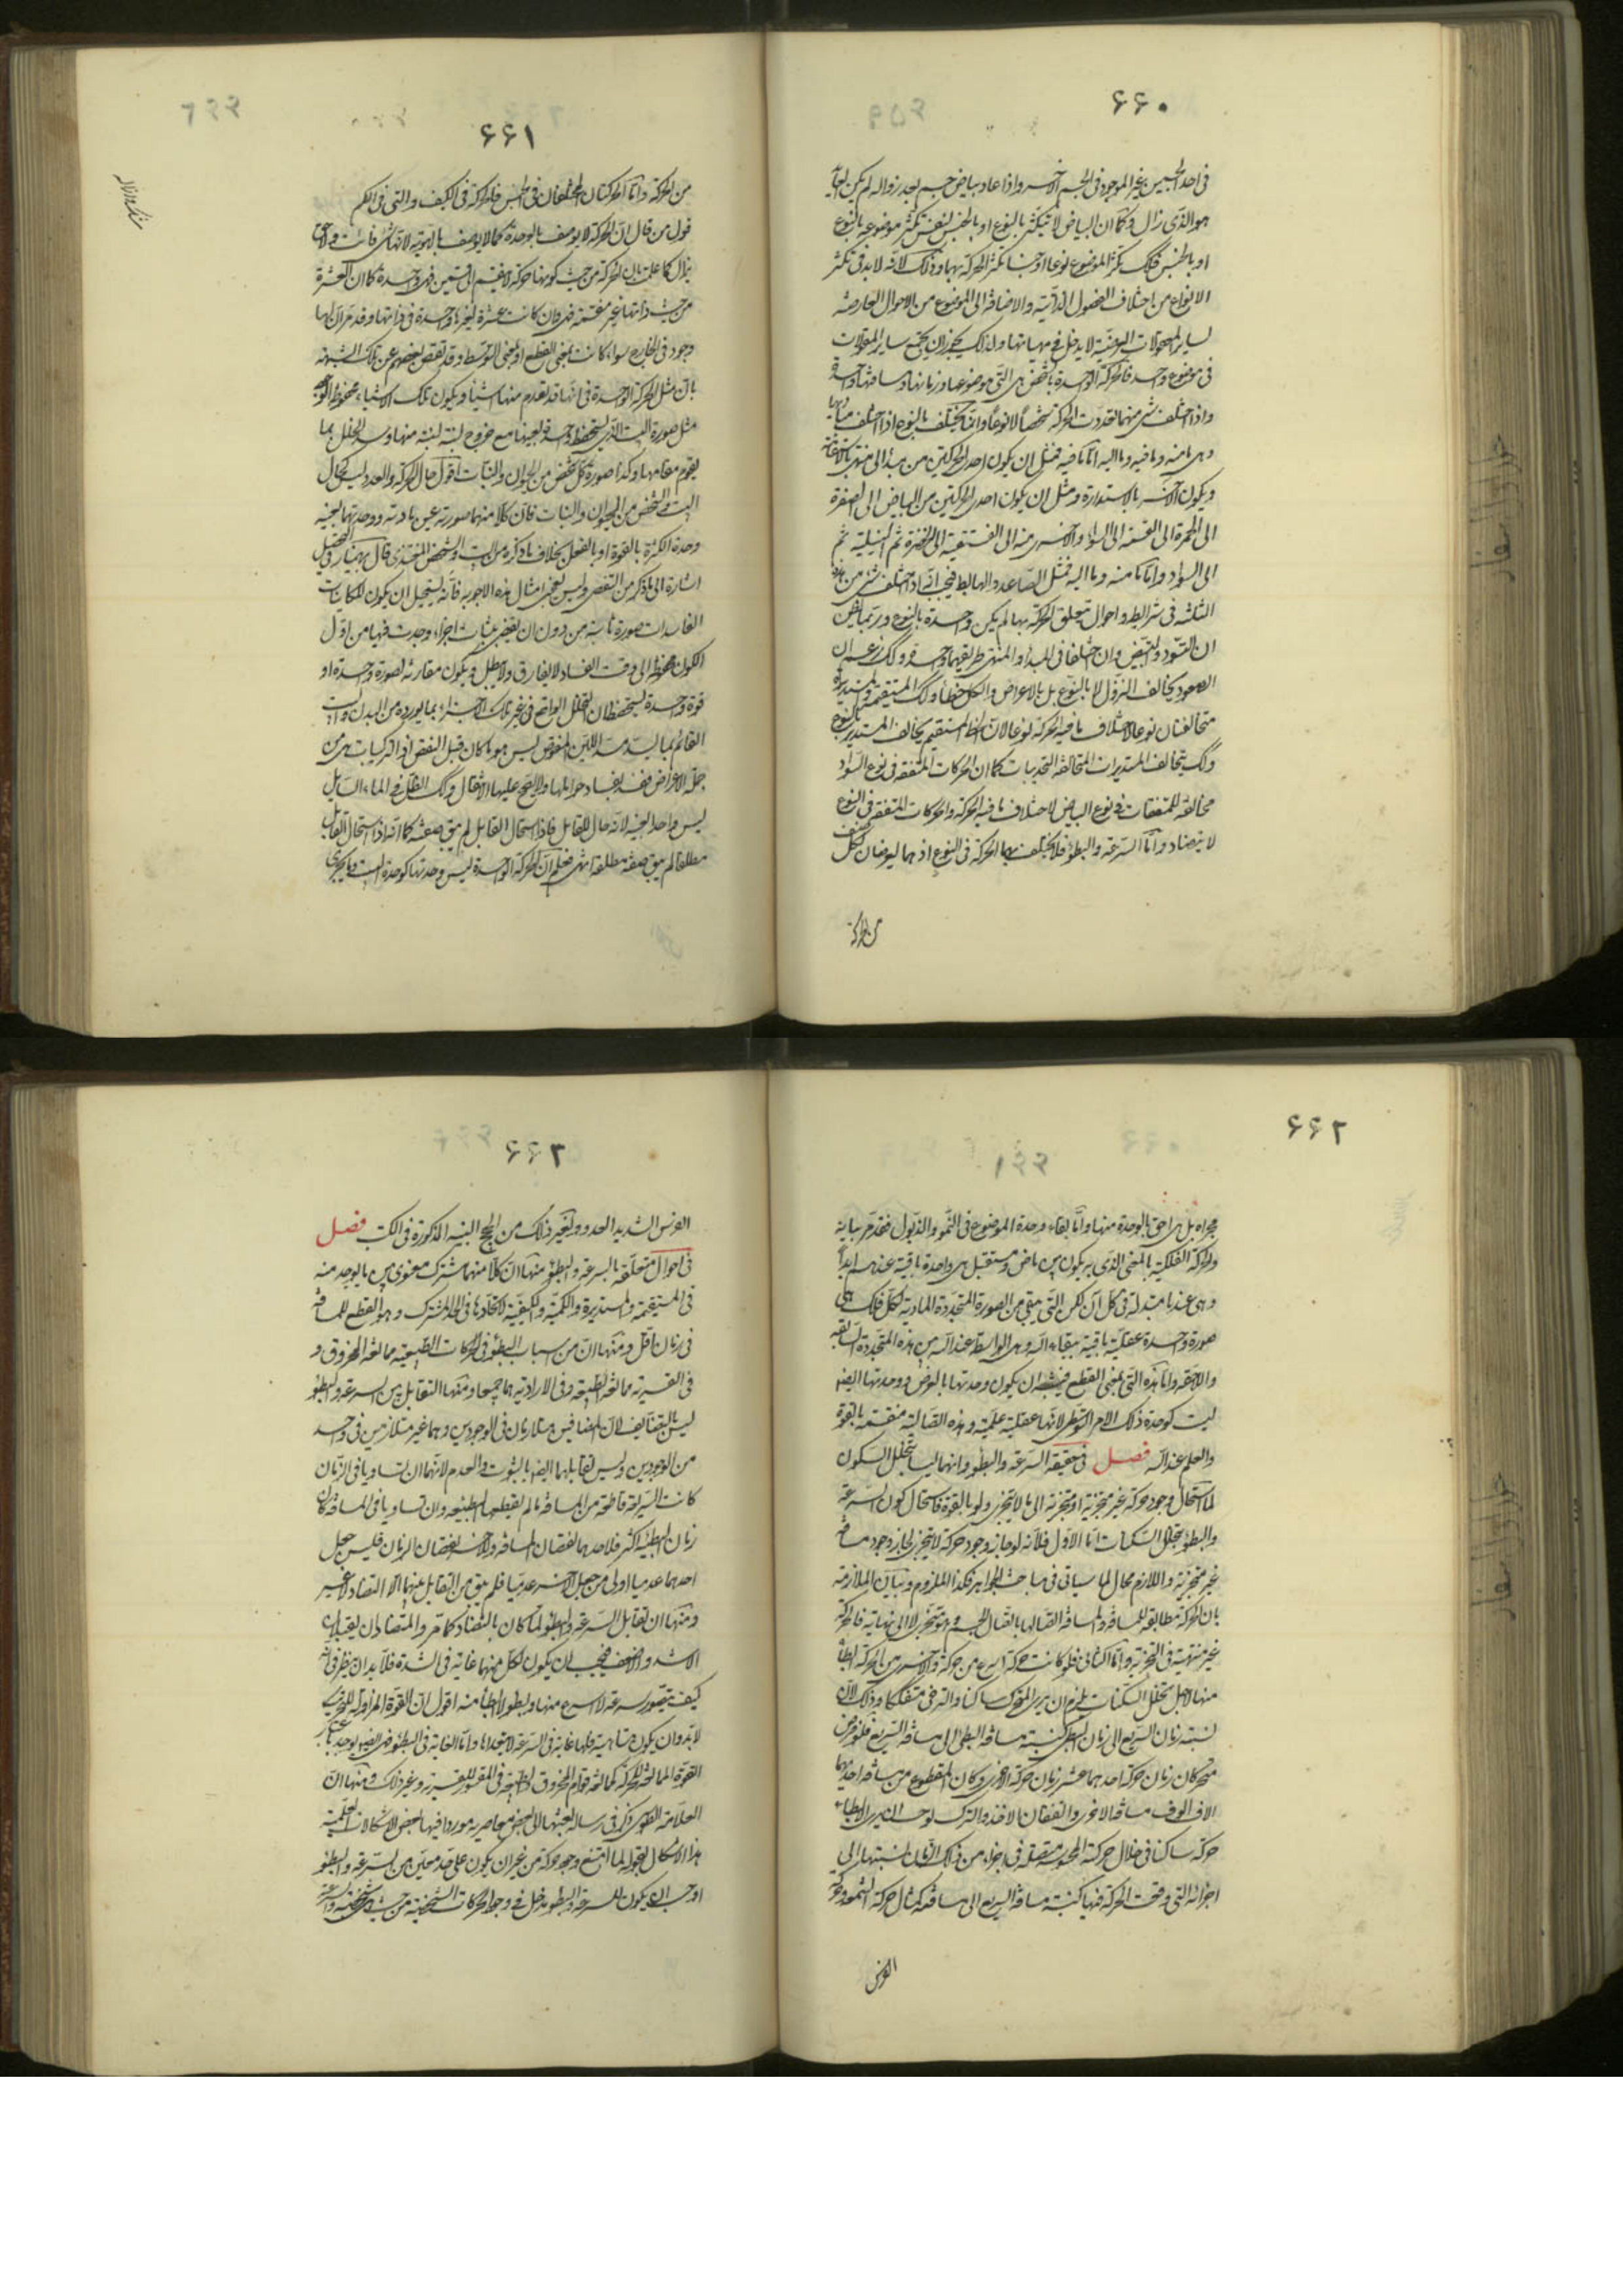 ۶۶۰
فی احد الجسمین غیر الموجود فی الجسم الآخر واذا عاد بیاض جسم بعد زواله لم یکن العاید
هو الذی زال وکما ان البیاض لا یتکثر بالنوع او بالجنس لنفس تکثر موضوعه بالنوع
او بالجنس فکذلک تکثر الموضوع نوعا او جنسا لا تکثر الحرکة بهما وذلک لانه لا بد فی تکثر
الانواع من اختلاف الفصول الذاتیة والاضافة الی الموضوع من الاحوال العارضة
لسایر المحمولات العرضیة لا یدخل فی مهیاتها ولذلک یجوز ان یجتمع سایر المقولات
فی موضوع واحد فالحرکة الواحدة بالشخص هی التی موضوعها وزمانها ومسافتها واحدة
واذا اختلف شئ منها تعددت الحرکة شخصا لا نوعا وانما یختلف بالنوع اذا اختلف مبادیها
وهی ما منه وما فیه وما الیه اما ما فیه فمثل ان یکون احدی الحرکتین من مبدأ الی منتهی بالاستقامة
ویکون الاخری بالاستدارة ومثل ان یکون احدی الحرکتین من البیاض الی الصفرة
الی الحمرة الی القتمة الی السواد والاخری منه الی الفستقیة الی الخضرة ثم النیلیة ثم
الی السواد واما ما منه وما الیه فمثل الصاعد والهابط فیجب انه اذا اختلف شئ من هذه
الثلثة فی شرایط واحوال یتعلق الحرکة بها لم یکن واحدة بالنوع وربما یظن
ان التسود والتبیض وان اختلفا فی المبدأ والمنتهی طریقهما واحد وکذلک زعم ان
الصعود یخالف النزول لا بالنوع بل بالاعراض والکل خطأ وکذلک المستقیمة والمستدیرة
متخالفتان نوعا لاختلاف ما فیه الحرکة نوعا لان الخط المستقیم یخالف المستدیر بالنوع
وکذلک یتخالف المستدیرات المتخالفة التحدیبات کما ان الحرکات المتفقة فی نوع السواد
مخالفة للمتفقات فی نوع البیاض لاختلاف ما فیه الحرکة والحرکات المتفقة فی النوع
لا یتضاد واما السرعة والبطؤ فلا یختلف بهما الحرکة فی النوع اذ هما یعرضان لکل صنف
من الحرکة
۶۶۱
من الحرکة واما الحرکتان المختلفتان فی الجنس فالحرکة فی الکیف والتی فی الکم
قول من قال ان الحرکة لا یوصف بالوحدة کما لا یوصف بالهویة لانها شئ فائت ولاحق
یزال کما علمت بان الحرکة من حیث کونها حرکة لا ینقسم الی قسمین فهی واحدة کما ان العشرة
من حیث ذاتها غیر منقسمة فهی وان کانت عشرة لغیرها واحدة فی ذاتها وقد مر ان لها
وجود فی الخارج سواء کانت بمعنی القطع او بمعنی التوسط وقد تفصی بعضهم عن تلک الشبهة
بان مثل الحرکة الواحدة فی انها قد تقدم منها اشیاء ویکون تلک الاشیاء محفوظة الوحدة
مثل صورة البیت الذی یستحفظ واحدة بعینها مع خروج لبنة لبنة منها وسد الخلل بما
یقوم مقامها وکذا صورة کل شخص من الحیوان والنبات اقول حال الحرکة والعدد لیس کحال
البیت والشخص من الحیوان والنبات فان کلا منهما صورته عین مادته ووحدتهما بعینه
وحدة الکثرة بالقوة او بالفعل بخلاف ما ذکره من البیت والشخص المتغذی قال بهمنیار فی التحصیل
اشارة الی ما ذکر من التفصی ولیس یعجبنی امثال هذه الاجوبة فانه یستحیل ان یکون للکاینات
الفاسدات صورة ثابتة من دون ان یقتضی ثبات اجزاء وجدت فیها من اول
الکون محفوظة الی وقت الفساد لا یفارق ولا یبطل ویکون مقارنة لصورة واحدة او
قوة واحدة یستحفظان التخلل الواقع فی غیر تلک الاجزاء بما یورده من البدل واما البیت
القائم بما یسد مسد اللبن المنقوض لیس هو ما کان قبل النقض اذ الترکیبات هی من
جملة الاعراض فتفسد بفساد حواملها ولا یصح علیها الانتقال وکذلک الظل فی الماء السایل
لیس واحدا بعینه لانه حال للقابل فاذا استحال القابل لم یبق صفته کما انه اذا استحال القابل
مطلقا لم یبق صفة مطلقة انتهی فعلم ان الحرکة الواحدة لیس وحدتها کوحدة البیت وما یجری
۶۶۲
مجراه بل هی احق بالوحدة منها واما بقاء وحدة الموضوع فی النمو والذبول فقد مر بیانه
والحرکة الفلکیة بالمعنی الذی به یکون بین ماض ومستقبل هی واحدة باقیة عندهم ابدا
وهی عندنا متبدلة فی کل آن لکن التی یبقی من الصورة المتجددة المادیة لکل فلک هی
صورة واحدة عقلیة باقیة ببقاء الله وهی الواسطة عند الله بین هذه المتجددة السابقة
واللاحقة واما هذه التی بمعنی القطع فیشبه ان یکون وحدتها بالعرض ووحدتها ایضا
لیست کوحدة ذلک الامر التوسطی لانها عقلیة علمیة وهذه اتصالیة منقسمة بالقوة
والعلم عند الله فصل فی حقیقة السرعة والبطؤ وانهما لیسا بتخلل السکون
لما استحال وجود حرکة غیر متجزیة او متجزیة الی ما لا یتجزی ولو بالقوة فاستحال کون السرعة
والبطؤ بتخلل السکنات اما الاول فلانه لو جاز وجود حرکة لا یتجزی لجاز وجود مسافة
غیر متجزیة واللازم محال لما سیاتی فی مباحث الجواهر فکذا الملزوم وبیان الملازمة
بان الحرکة مطابقة للمسافة والمسافة اتصالها باتصال الجسم وهو متجز لا الی نهایة فالحرکة
غیر منتهیة فی التجزیة واما الثانی فلو کانت حرکة اسرع من حرکة والاخری من الحرکة ابطأ
منها لاجل تخلل السکنات یلزم ان یری المتحرک ساکنا والرحی متفککا وذلک لان
نسبة زمان السریع الی زمان البطئ کنسبة مسافة البطئ الی مسافة السریع فلو فرض
متحرکان زمان حرکة احدهما عشر زمان حرکة الاخری وکان المقطوع من مسافة احدیهما
الاف الوف مسافة الاخری واتفقتا فی الاخذ والترک لوجب ان یری الابطاء
حرکة ساکنا فی خلال حرکته المحسوسة متصلة فی اجزاء من ذلک الزمان نسبتها الی
اجزائه التی وقعت الحرکة فیها کنسبة مسافة السریع الی مسافته کمثال حرکة الشمس وحرکة
الفرس
۶۶۳
الفرس الشدید العدو ولغیر ذلک من الحجج البینة المذکورة فی الکتب فصل
فی احوال متعلقة بالسرعة والبطؤ منها ان کلا منهما مشترک معنوی بین ما یوجد منه
فی المستقیمة والمستدیرة والکمیة والکیفیة لاتحادها فی الحد المشترک وهو القطع للمسافة
فی زمان اقل ومنها ان من اسباب البطؤ فی الحرکات الطبیعیة ممانعة المخروق و
فی القسریة ممانعة الطبیعة وفی الارادیة هما جمیعا ومنها التقابل بین السرعة والبطؤ
لیس بالتضایف لان المضافین متلازمان فی الوجودین وهما غیر متلازمین فی واحد
من الوجودین ولیس تقابلهما ایضا بالثبوت والعدم لانهما ان تساویا فی الزمان
کانت السریعة قاطعة من المسافة ما لم یقطعها البطیئة وان تساویا فی المسافة کان
زمان البطیئة اکثر فلاحدهما نقصان المسافة وللآخر نقصان الزمان فلیس جعل
احدهما عدمیا اولی من جعل الآخر عدمیا فلم یبق من التقابل بینهما الا التضاد لا غیر
ومنها ان تقابل السرعة والبطؤ لما کان بالتضاد کما مر والمتضادان یقبلان
الاشد والاضعف فیجب ان یکون لکل منهما غایة فی الشدة فلا بد ان ینظر فی انه
کیف یتصور سرعة لا اسرع منها وبطؤ لا ابطأ منه اقول ان القوة المزاولة للتحریک
لا بد وان یکون متناهیة فلها غایة فی السرعة لا یتعداها واما الغایة فی البطؤ فهی ایضا یوجد باعتبار
القوة الممانعة للحرکة کممانعة قوام المخروق والطبیعة فی المقسور للقسریة وغیر ذلک ومنها ان
العلامة الطوسی ذکر فی رسالة بعثها الی بعض معاصریه موردا فیها بعض الاشکالات العلمیة
هذا الاشکال بقوله لما امتنع وجود حرکة من غیر ان یکون علی حد معین من السرعة والبطؤ
اوجب ان یکون للسرعة والبطؤ مدخل فی وجود الحرکات الشخصیة من حیث هی شخصیة والسرعة